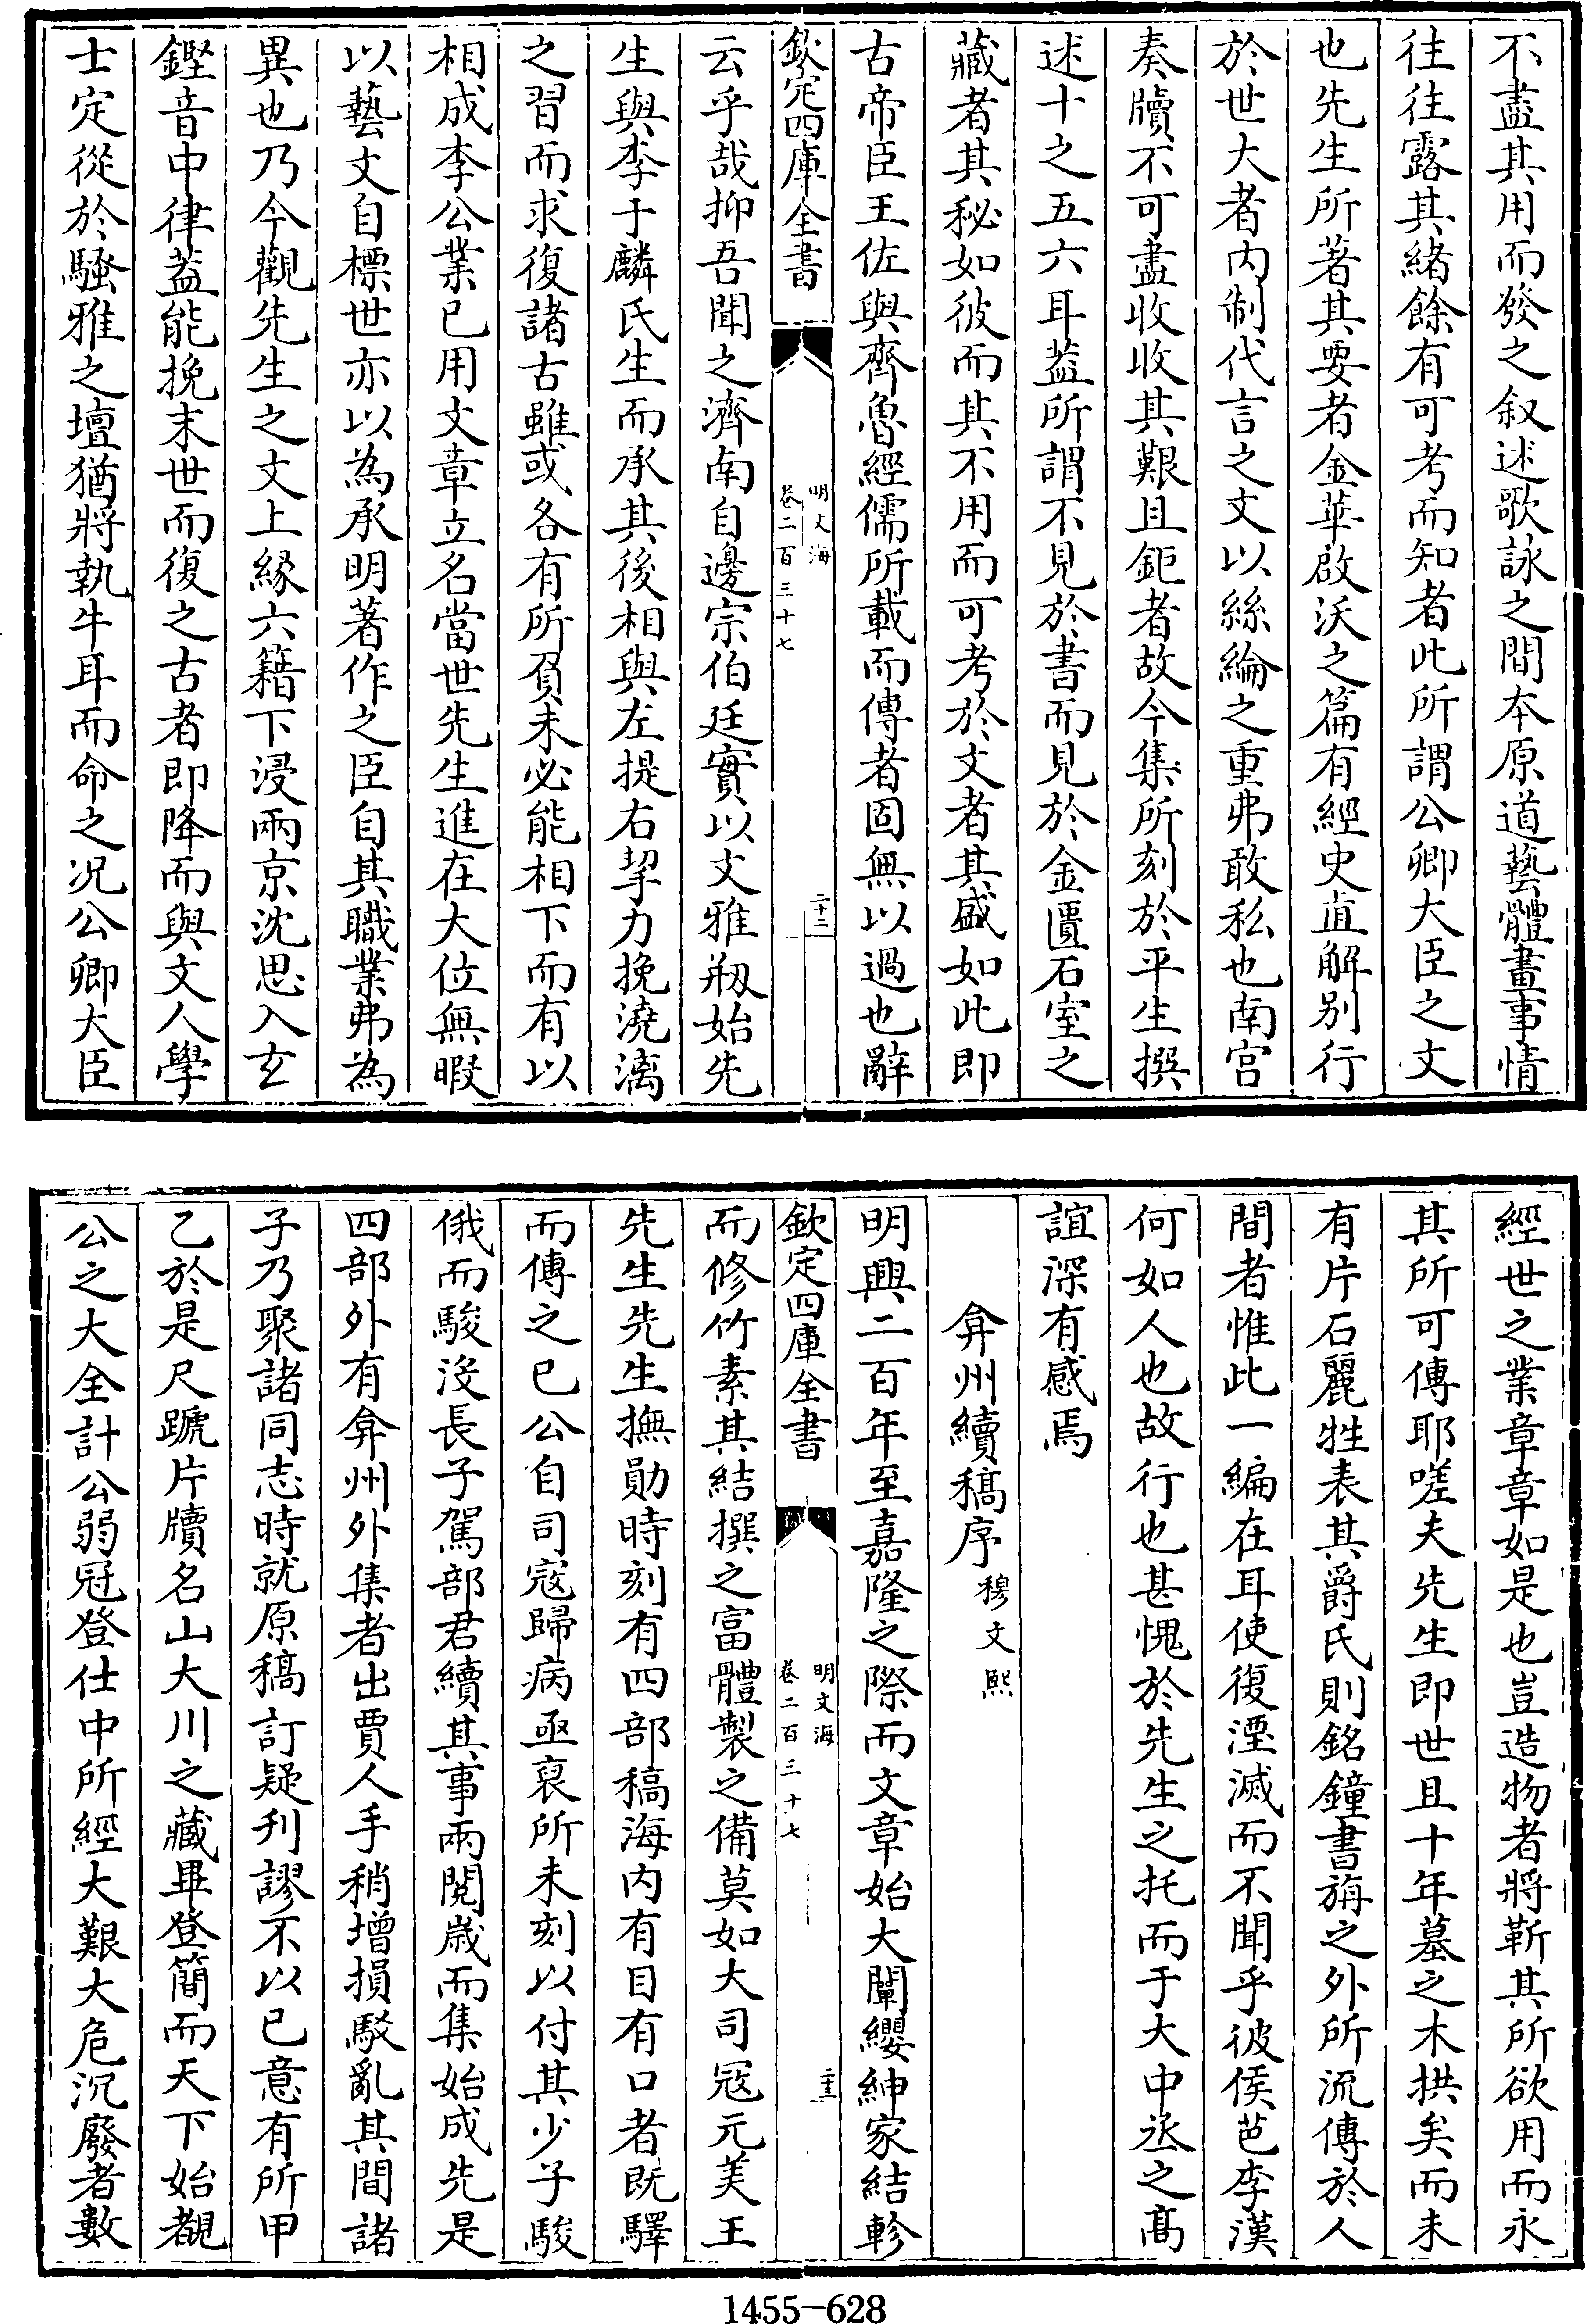 不盡其用而發之叙述歌詠之間本原道藝體畫事情
往往露其緒餘有可考而知者此所謂公卿大臣之文
也先生所著其要者金華啟沃之篇有經史直解別行
於世大者内制代言之文以絲綸之重弗敢私也南宫
奏牘不可盡收收其艱且鉅者故今集所刻於平生撰
述十之五六耳葢所謂不見於書而見於金匱石室之
藏者其秘如彼而其不用而可考於文者其盛如此即
古帝臣王佐與齊魯經儒所載而傳者固無以過也辭
欽定四庫全書
明文海
卷二百三十七
二十二
云乎哉抑吾聞之濟南自邊宗伯廷實以文雅剏始先
生與李于麟氏生而承其後相與左提右挈力挽澆漓
之習而求復諸古雖或各有所負未必能相下而有以
相成李公業已用文章立名當世先生進在大位無暇
以藝文自標世亦以為承明著作之臣自其職業弗為
異也乃今觀先生之文上緣六籍下浸兩京沈思入玄
鏗音中律葢能挽末世而復之古者即降而與文人學
士定從於騷雅之壇猶將執牛耳而命之况公卿大臣
經世之業章章如是也豈造物者將靳其所欲用而永
其所可傳耶嗟夫先生即世且十年墓之木拱矣而未
有片石麗牲表其爵氏則銘鐘書旃之外所流傳於人
間者惟此一編在耳使復湮滅而不聞乎彼侯芭李漢
何如人也故行也甚愧於先生之托而于大中丞之髙
誼深有感焉
弇州續稿序穆文熙
明興二百年至嘉隆之際而文章始大闡纓紳家結軫
欽定四庫全書
明文海
卷二百三十七
二十三
而修竹素其結撰之富體製之備莫如大司寇元美王
先生先生撫勛時刻有四部稿海内有目有口者既驛
而傳之已公自司寇歸病亟裒所未刻以付其少子駿
俄而駿沒長子駕部君續其事兩閱歲而集始成先是
四部外有弇州外集者出賈人手稍增損駁亂其間諸
子乃聚諸同志時就原稿訂疑刋謬不以已意有所甲
乙於是尺蹏片牘名山大川之藏畢登簡而天下始覩
公之大全計公弱冠登仕中所經大艱大危沉廢者數
1455-628